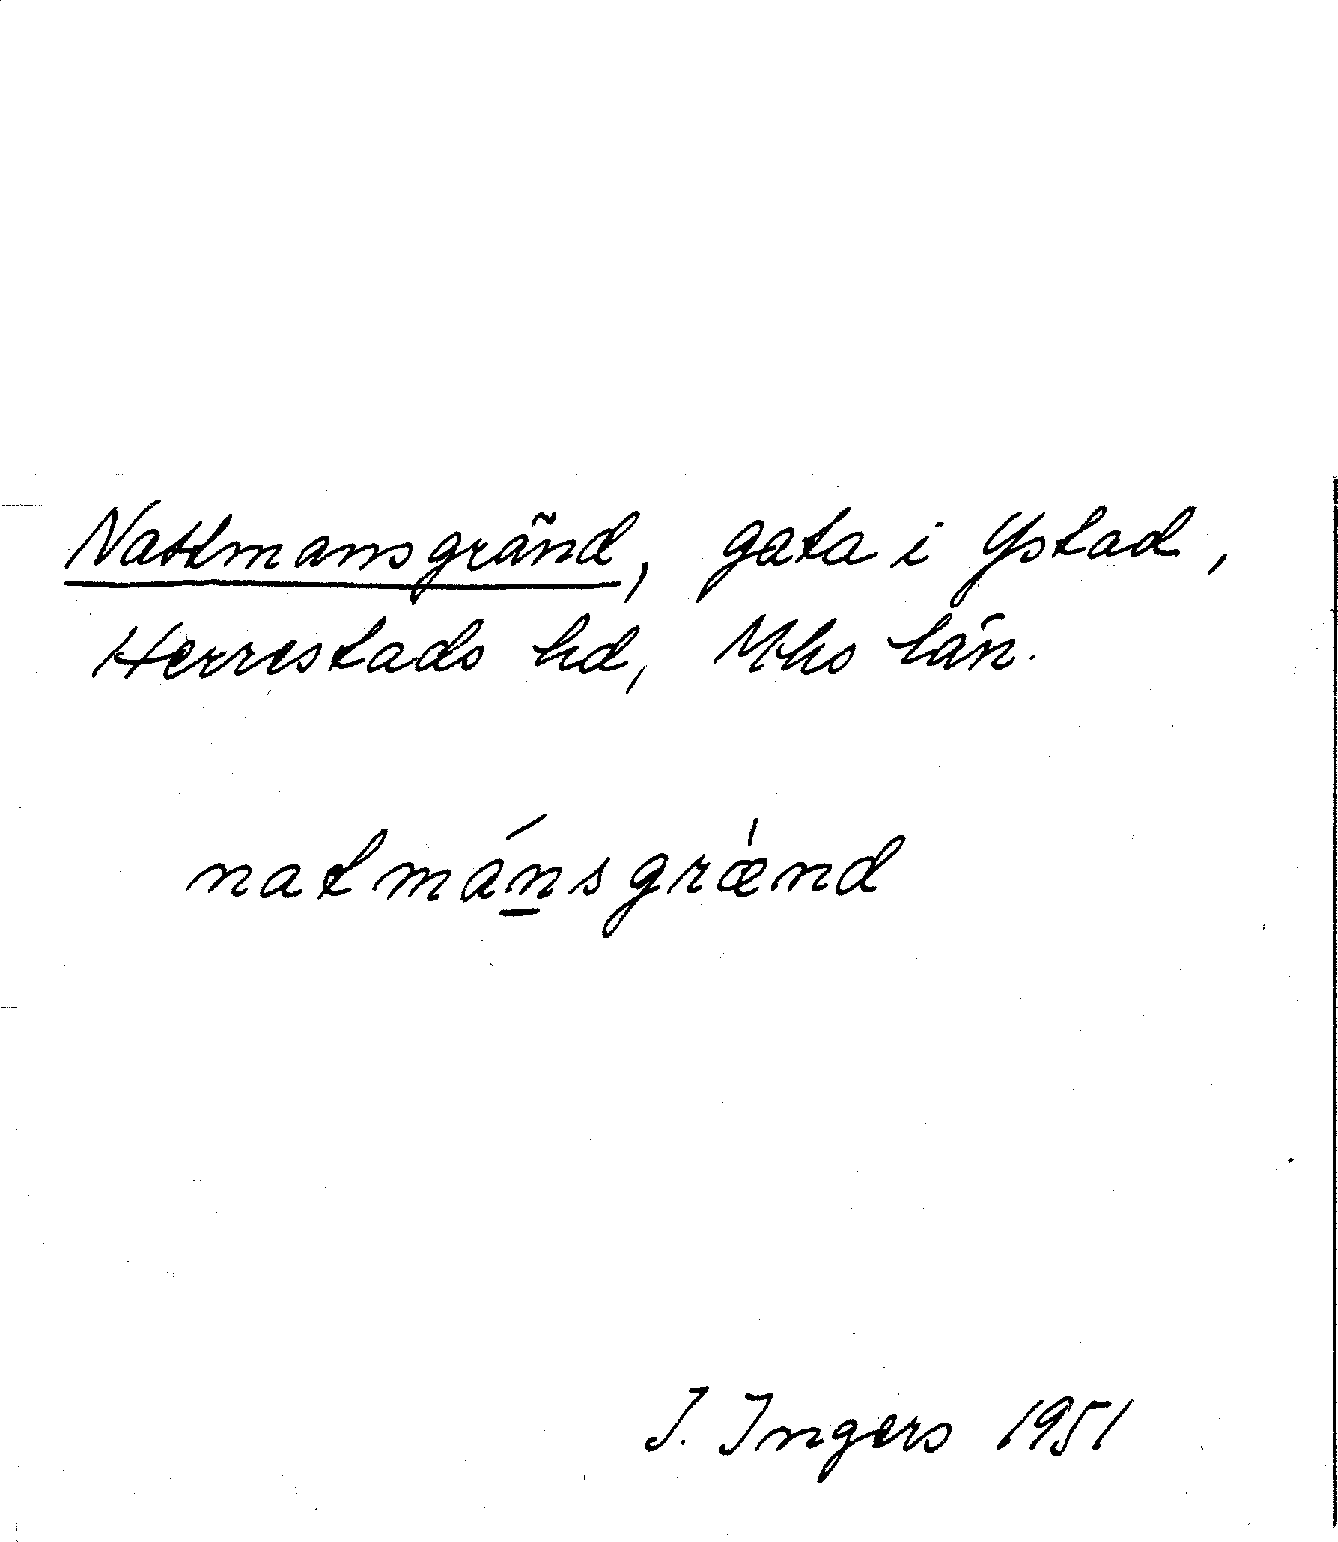 Nattmansgränd, gata i Ystad,
Herrestads hd, Mhs län.
natmánsgrænd
I. Ingers 1951